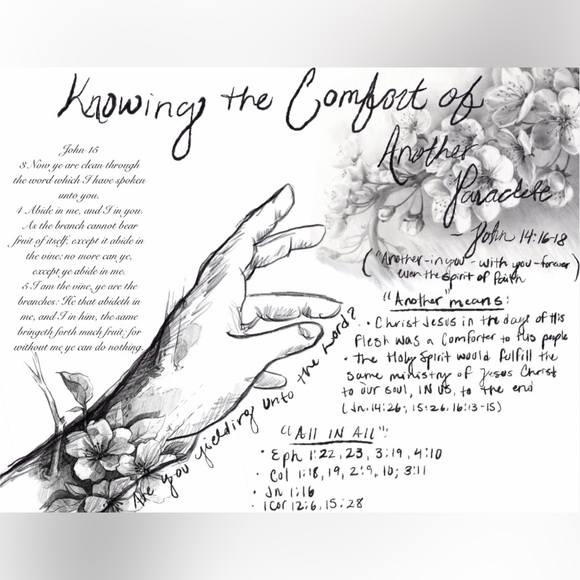 Knowing the Comfort of
Another
Paraclete
- John 14:16-18
("Another-in you-with you-forever)
even the spirit of faith
John 15
3 Now ye are clean through
the word which I have spoken
unto you.
4 Abide in me, and I in you.
As the branch cannot bear
fruit of itself, except it abide in
the vine; no more can ye,
except ye abide in me.
5 I am the vine, ye are the
branches: He that abideth in
me, and I in him, the same
bringeth forth much fruit: for
without me ye can do nothing.
"Another" means:
• Christ Jesus in the days of His
Flesh was a Comforter to His people
• the Holy Spirit would fulfill the
same ministry of Jesus Christ
to our soul, IN US, to the end
(Jn. 14:26; 15:26, 16:13-15)
Are you yielding unto the Lord?
"All IN All":
• Eph 1:22, 23, 3:19, 4:10
• Col 1:18, 19, 2:9, 10; 3:11
• Jn 1:16
• 1 Cor 12:6, 15:28